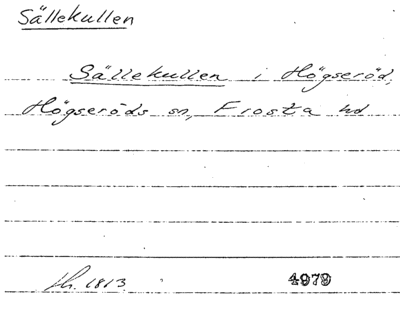 Sällekullen
Sällekullen i Högseröd,
Högseröds sn, Frosta hd
1813 4979